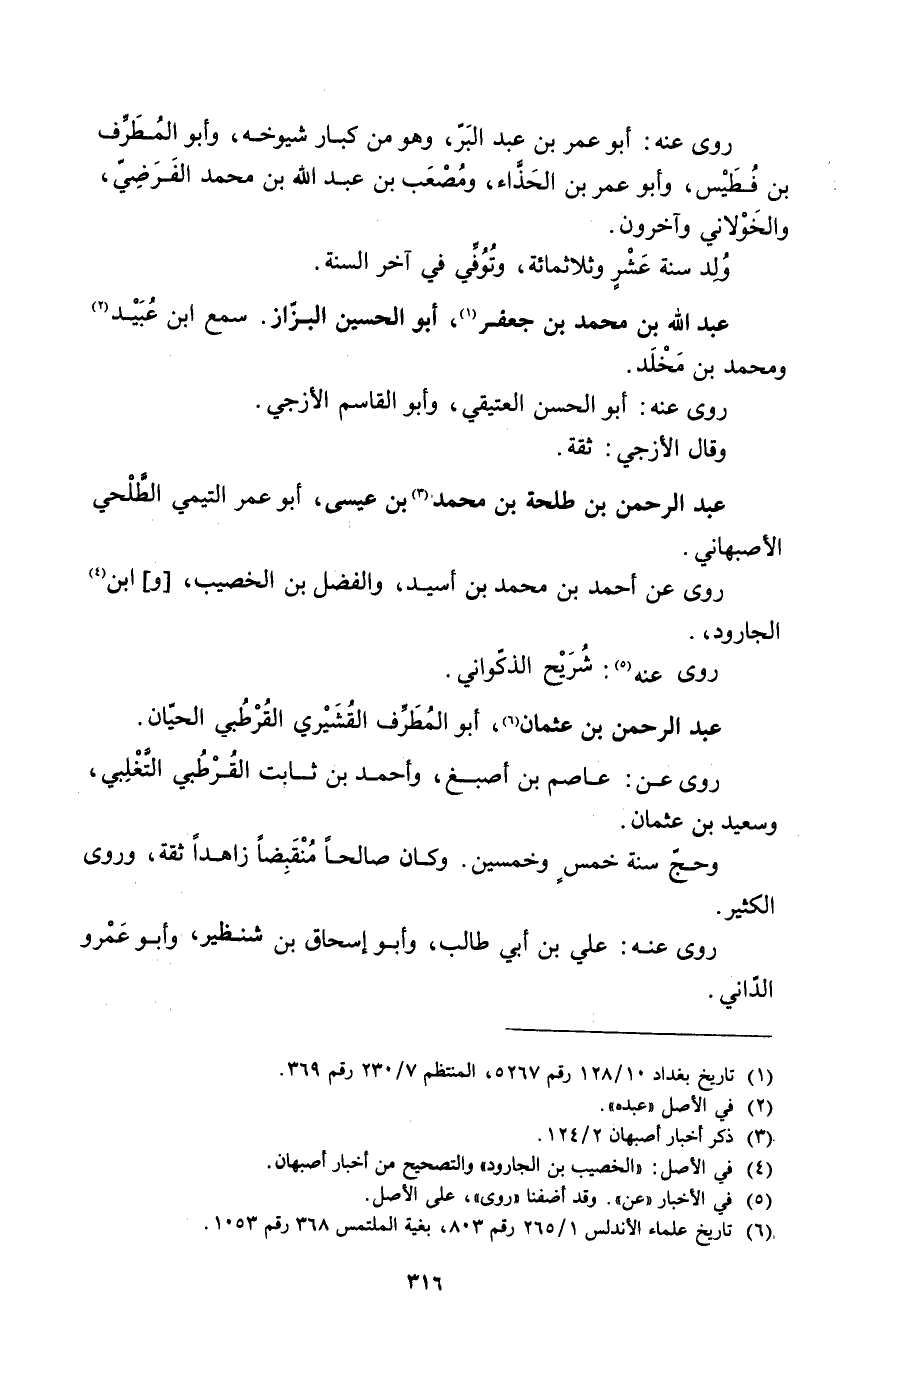 روى عنه: أبو عمر بن عبد البَرّ، وهو من كبار شيوخه، وأبو المُطَرِّف
بن فُطَيْس، وأبو عمر بن الحَذَّاء، ومُصْعَب بن عبد الله بن محمد الفَرَضِيّ،
والخَوْلاني وآخرون.
وُلِد سنة عَشْرٍ وثلاثمائة، وتُوُفِّي في آخر السنة.
عبد الله بن محمد بن جعفر(١)، أبو الحسين البزّاز. سمع ابن عُبَيْد(٢)
ومحمد بن مَخْلَد.
روى عنه: أبو الحسن العتيقي، وأبو القاسم الأزجي.
وقال الأزجي: ثقة.
عبد الرحمن بن طلحة بن محمد(٣) بن عيسى، أبو عمر التيمي الطَّلْحي
الأصبهاني.
روى عن أحمد بن محمد بن أسيد، والفضل بن الخصيب، [و] ابن(٤)
الجارود،.
روى عنه(٥): شُرَيْح الذكّواني.
عبد الرحمن بن عثمان(٦)، أبو المُطَرِّف القُشَيْري القُرْطُبي الحيّان.
روى عن: عاصم بن أصبغ، وأحمد بن ثابت القُرْطُبي التَّغْلِبي،
وسعيد بن عثمان.
وحجّ سنة خمسٍ وخمسين. وكان صالحاً مُنْقَبِضاً زاهداً ثقة، وروى
الكثير.
روى عنه: علي بن أبي طالب، وأبو إسحاق بن شنظير، وأبو عَمْرو
الدّاني.
(١) تاريخ بغداد ١٢٨/١٠ رقم ٥٢٦٧، المنتظم ٢٣٠/٧ رقم ٣٦٩.
(٢) في الأصل «عبده».
(٣) ذكر أخبار أصبهان ١٢٤/٢.
(٤) في الأصل: «الخصيب بن الجارود» والتصحيح من أخبار أصبهان.
(٥) في الأخبار «عن». وقد أضفنا «روى»، على الأصل.
(٦) تاريخ علماء الأندلس ٢٦٥/١ رقم ٨٠٣، بغية الملتمس ٣٦٨ رقم ١٠٥٣.
٣١٦